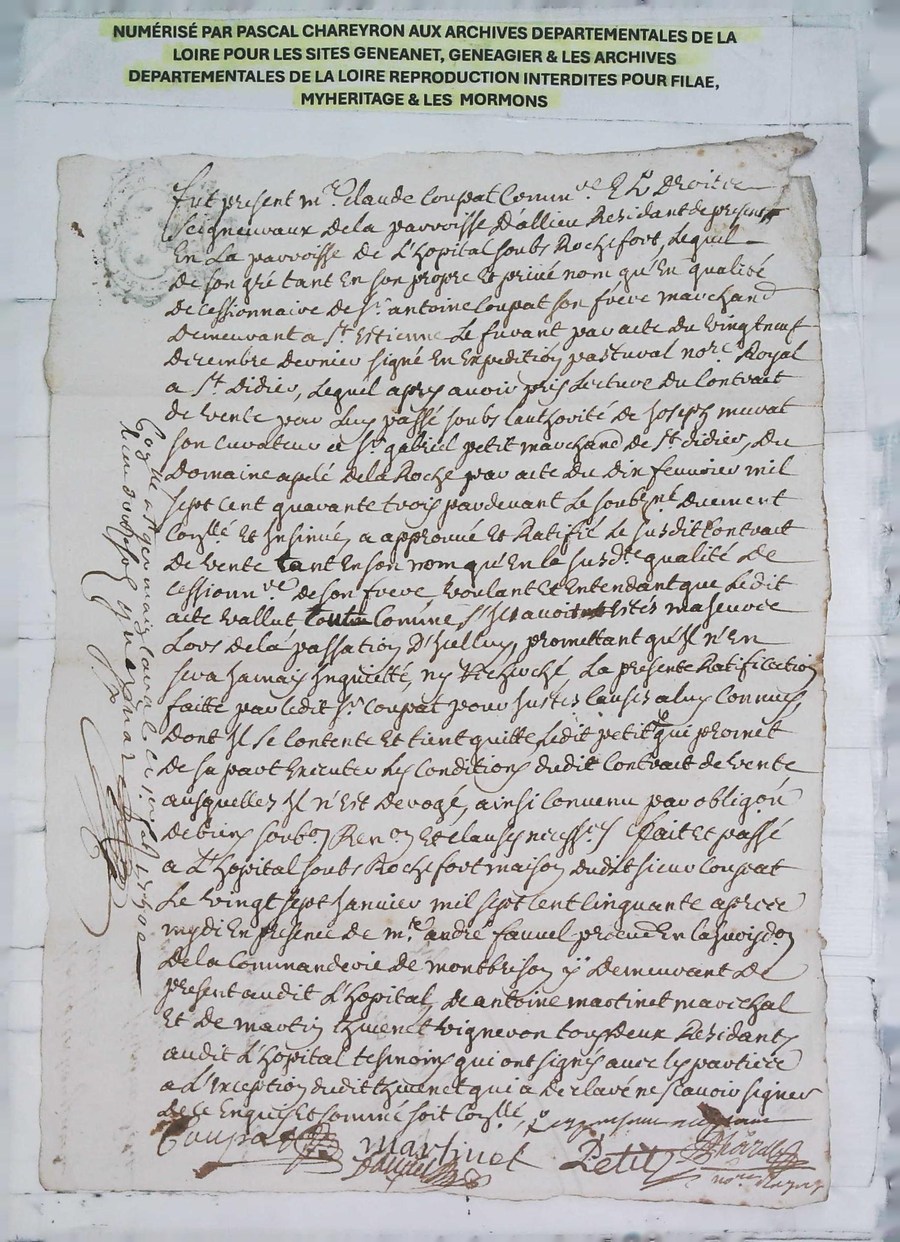 NUMÉRISÉ PAR PASCAL CHAREYRON AUX ARCHIVES DEPARTEMENTALES DE LA
LOIRE POUR LES SITES GENEANET, GENEAGIER & LES ARCHIVES
DEPARTEMENTALES DE LA LOIRE REPRODUCTION INTERDITES POUR FILAE,
MYHERITAGE & LES MORMONS
fut present mre Claude Coupat Commre Et Droits
seigneuraux de la parroisse d'allieu Residant de present
En La parroisse de L'hopital soubs Rochefort, Lequel
de son gré tant En son propre Et privé nom qu'En qualité
de Cessionnaire de Sr antoine Coupat son frere marchand
Demeurant a St Estienne Le suivant par acte du vingt neuf
Decembre Dernier signé En Expedition pasturval nore Royal
a St Didier, Lequel apres avoir pris Lecture du Contrait
de vente par Luy passé soubs Lauthorité de Joseph murat
son Curateur a Sr gabriel petit marchand de St Didier, du
Domaine apelé de la Roche par acte du dix fevrier mil
sept Cent quarante trois pardevant Le soubsné Duement
Conllé Et Insinué, a approuvé Et Ratifié Le susdit Contrait
de vente tant En son nom qu'En la susdte qualité de
Cessionnre de son frere voulant Et Entendant que Ledit
acte vallut Comme s'Il avoit Estés majeur
Lors de la passation D'Icelluy, promettant qu'Il n'En
sera Jamais Inquietté, ny Recherché, La presente Ratification
faitte par Ledit Sr Coupat pour Justes Causes a luy Connues
Dont Il se Contente Et tient quitte Ledit petit qui promet
de sa part Executer Les Conditions dudit Contrait de vente
ausquelles Il n'Est derogé, ainsi Convenu par obligon
de biens soubmon Renon Et clauses necessres fait Et passé
a L'hopital soubs Rochefort maison dudit sieur Coupat
Le vingt sept Janvier mil sept Cent Cinquante apres
mydi En presence de mre andré fauvel En la
de la Commanderie de montbrison y Demeurant de
present audit L'hopital, de antoine martinet marechal
Et de martin thevenet vigneron tous deux Residants
audit L'hopital tesmoins qui ont signés avec Les parties
a L'Exception dudit thevenet qui a declaré ne scavoir signer
de ce Enquis Et sommé soit Conllé,
Coupat martinet Petit
fauvel nore Royal
Conllé a St germain Laval Ce